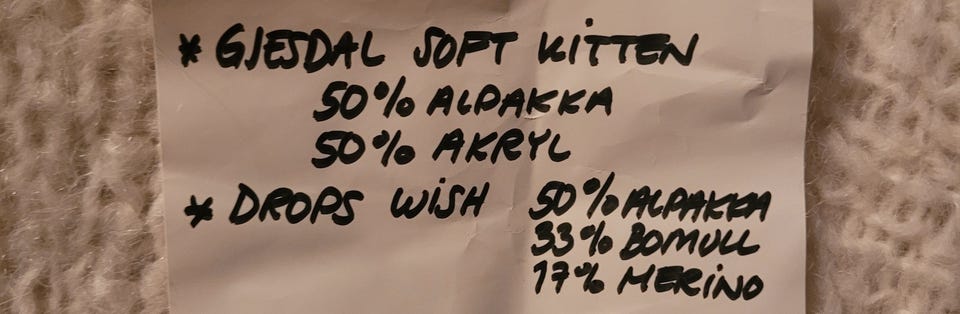 * GJESDAL SOFT KITTEN
50% ALPAKKA
50% AKRYL
* DROPS WISH 50% ALPAKKA
33% BOMULL
17% MERINO